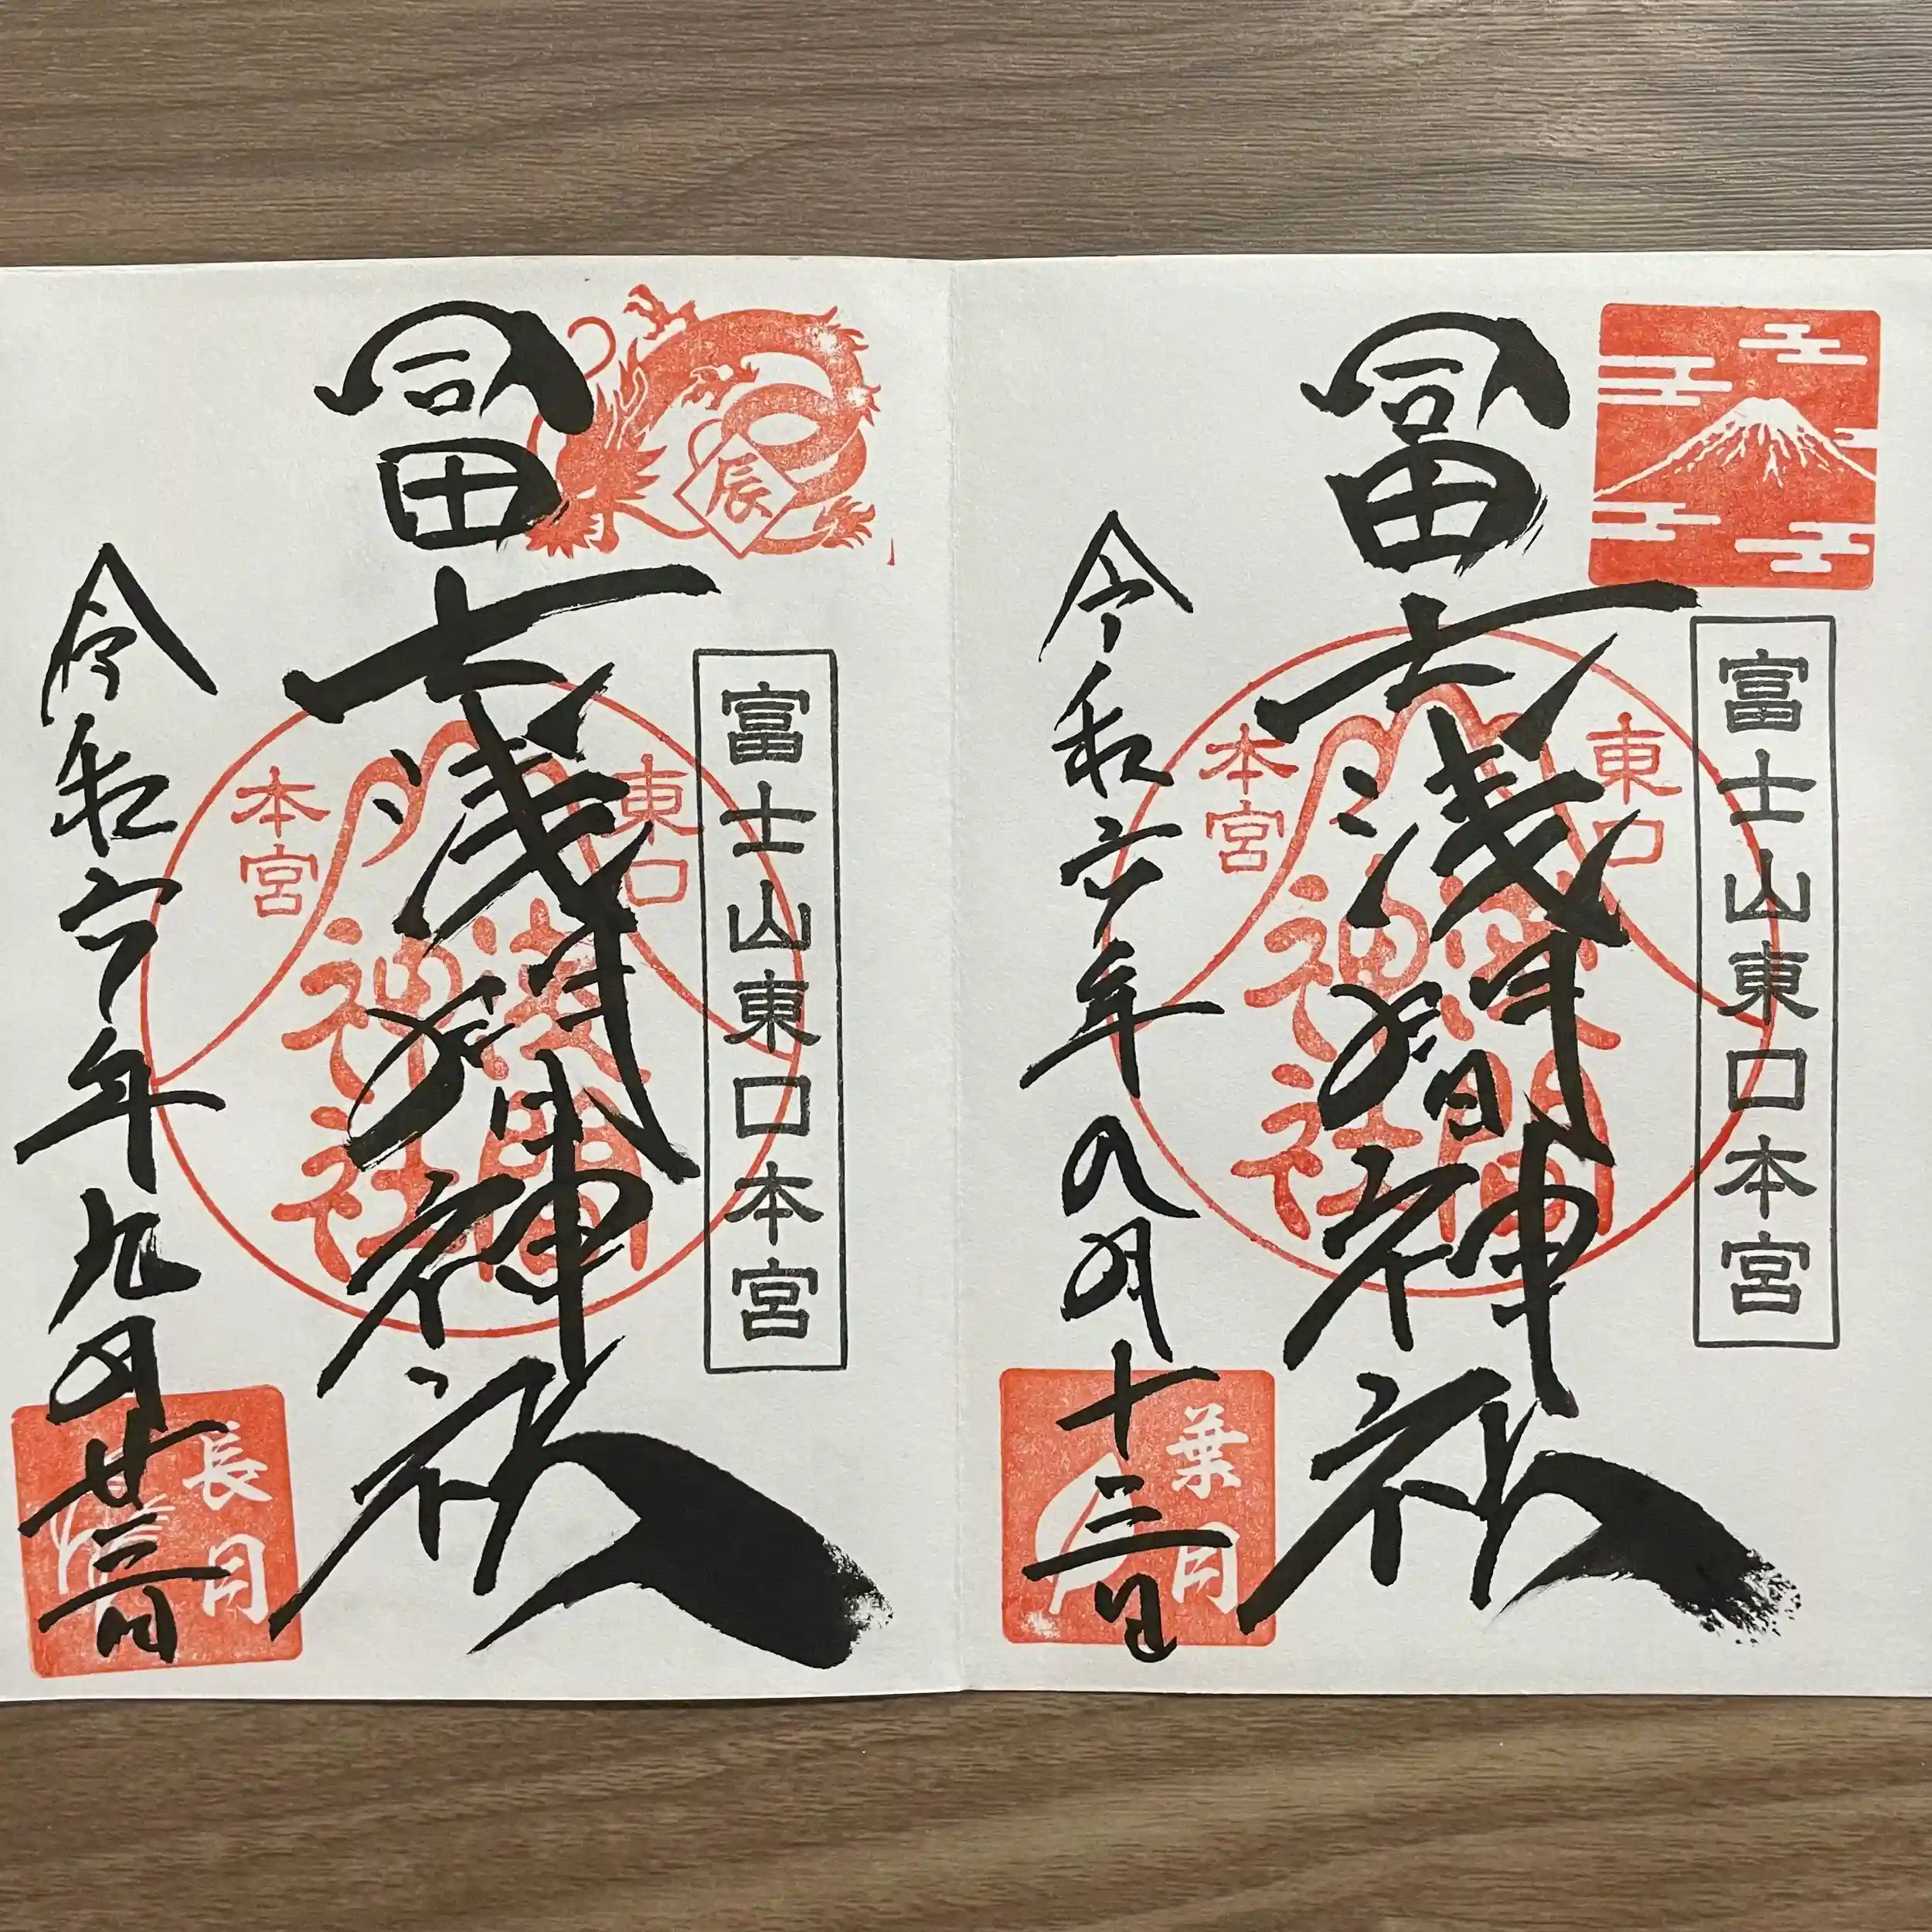 富士山東口本宮
冨士浅間神社
東口
本宮
浅間
神社
令和六年八月十三日
葉月
辰
富士山東口本宮
冨士浅間神社
東口
本宮
浅間
神社
令和六年九月廿三日
長月